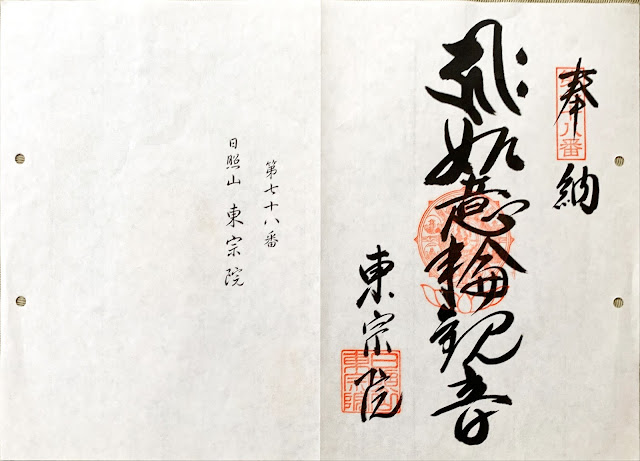 奉納
𑖮𑖿𑖨𑖱𑖾 如意輪観音
東宗院
第七十八番
日照山 東宗院